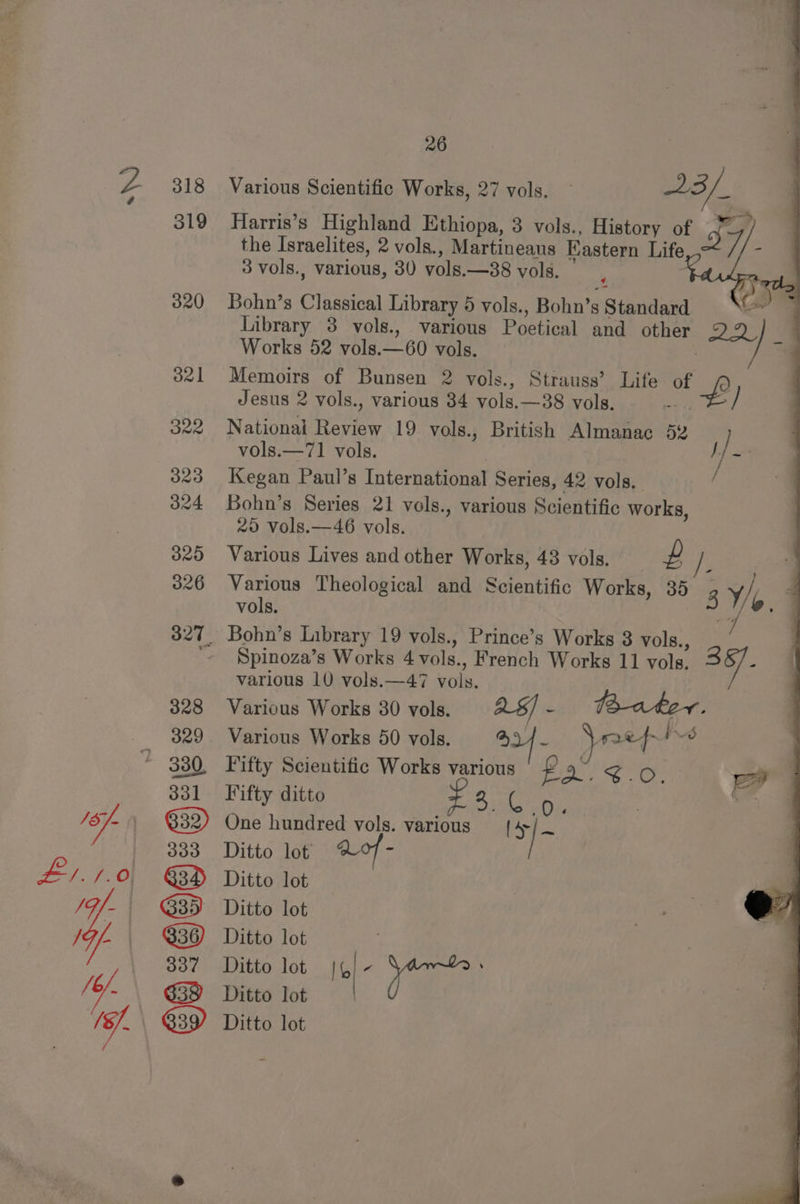 26
2 318 Various Scientific Works, 27 vols. 23/-
319 Harris's Highland Ethiopa, 3 vols., History of
the Israelites, 2 vols., Martineaus Eastern Life,
3 vols., various, 30 vols.—38 vols.
320 Bohn's Classical Library 5 vols., Bohn's Standard
Library 3 vols., various Poetical and other 22/-
Works 52 vols.—60 vols.
321 Memoirs of Bunsen 2 vols., Strauss' Life of
Jesus 2 vols., various 34 vols.—38 vols.
322 National Review 19 vols., British Almanac 52
vols.—71 vols.
323 Kegan Paul's International Series, 42 vols.
324 Bohn's Series 21 vols., various Scientific works,
25 vols.—46 vols.
325 Various Lives and other Works, 43 vols.
326 Various Theological and Scientific Works, 35
vols.
327 Bohn's Library 19 vols., Prince's Works 3 vols.,
Spinoza's Works 4 vols., French Works 11 vols. 38/-
various 10 vols.—47 vols.
328 Various Works 30 vols. 28/- Baker.
329 Various Works 50 vols. 32/- Josephs
330 Fifty Scientific Works various £2.8.0.
331 Fifty ditto £3.6.0.
15/- 332 One hundred vols. various 15/-
333 Ditto lot 20/-
£1.1.0 334 Ditto lot
19/- 335 Ditto lot
19/- 336 Ditto lot
337 Ditto lot 16/-
16/- 338 Ditto lot
18/- 339 Ditto lot